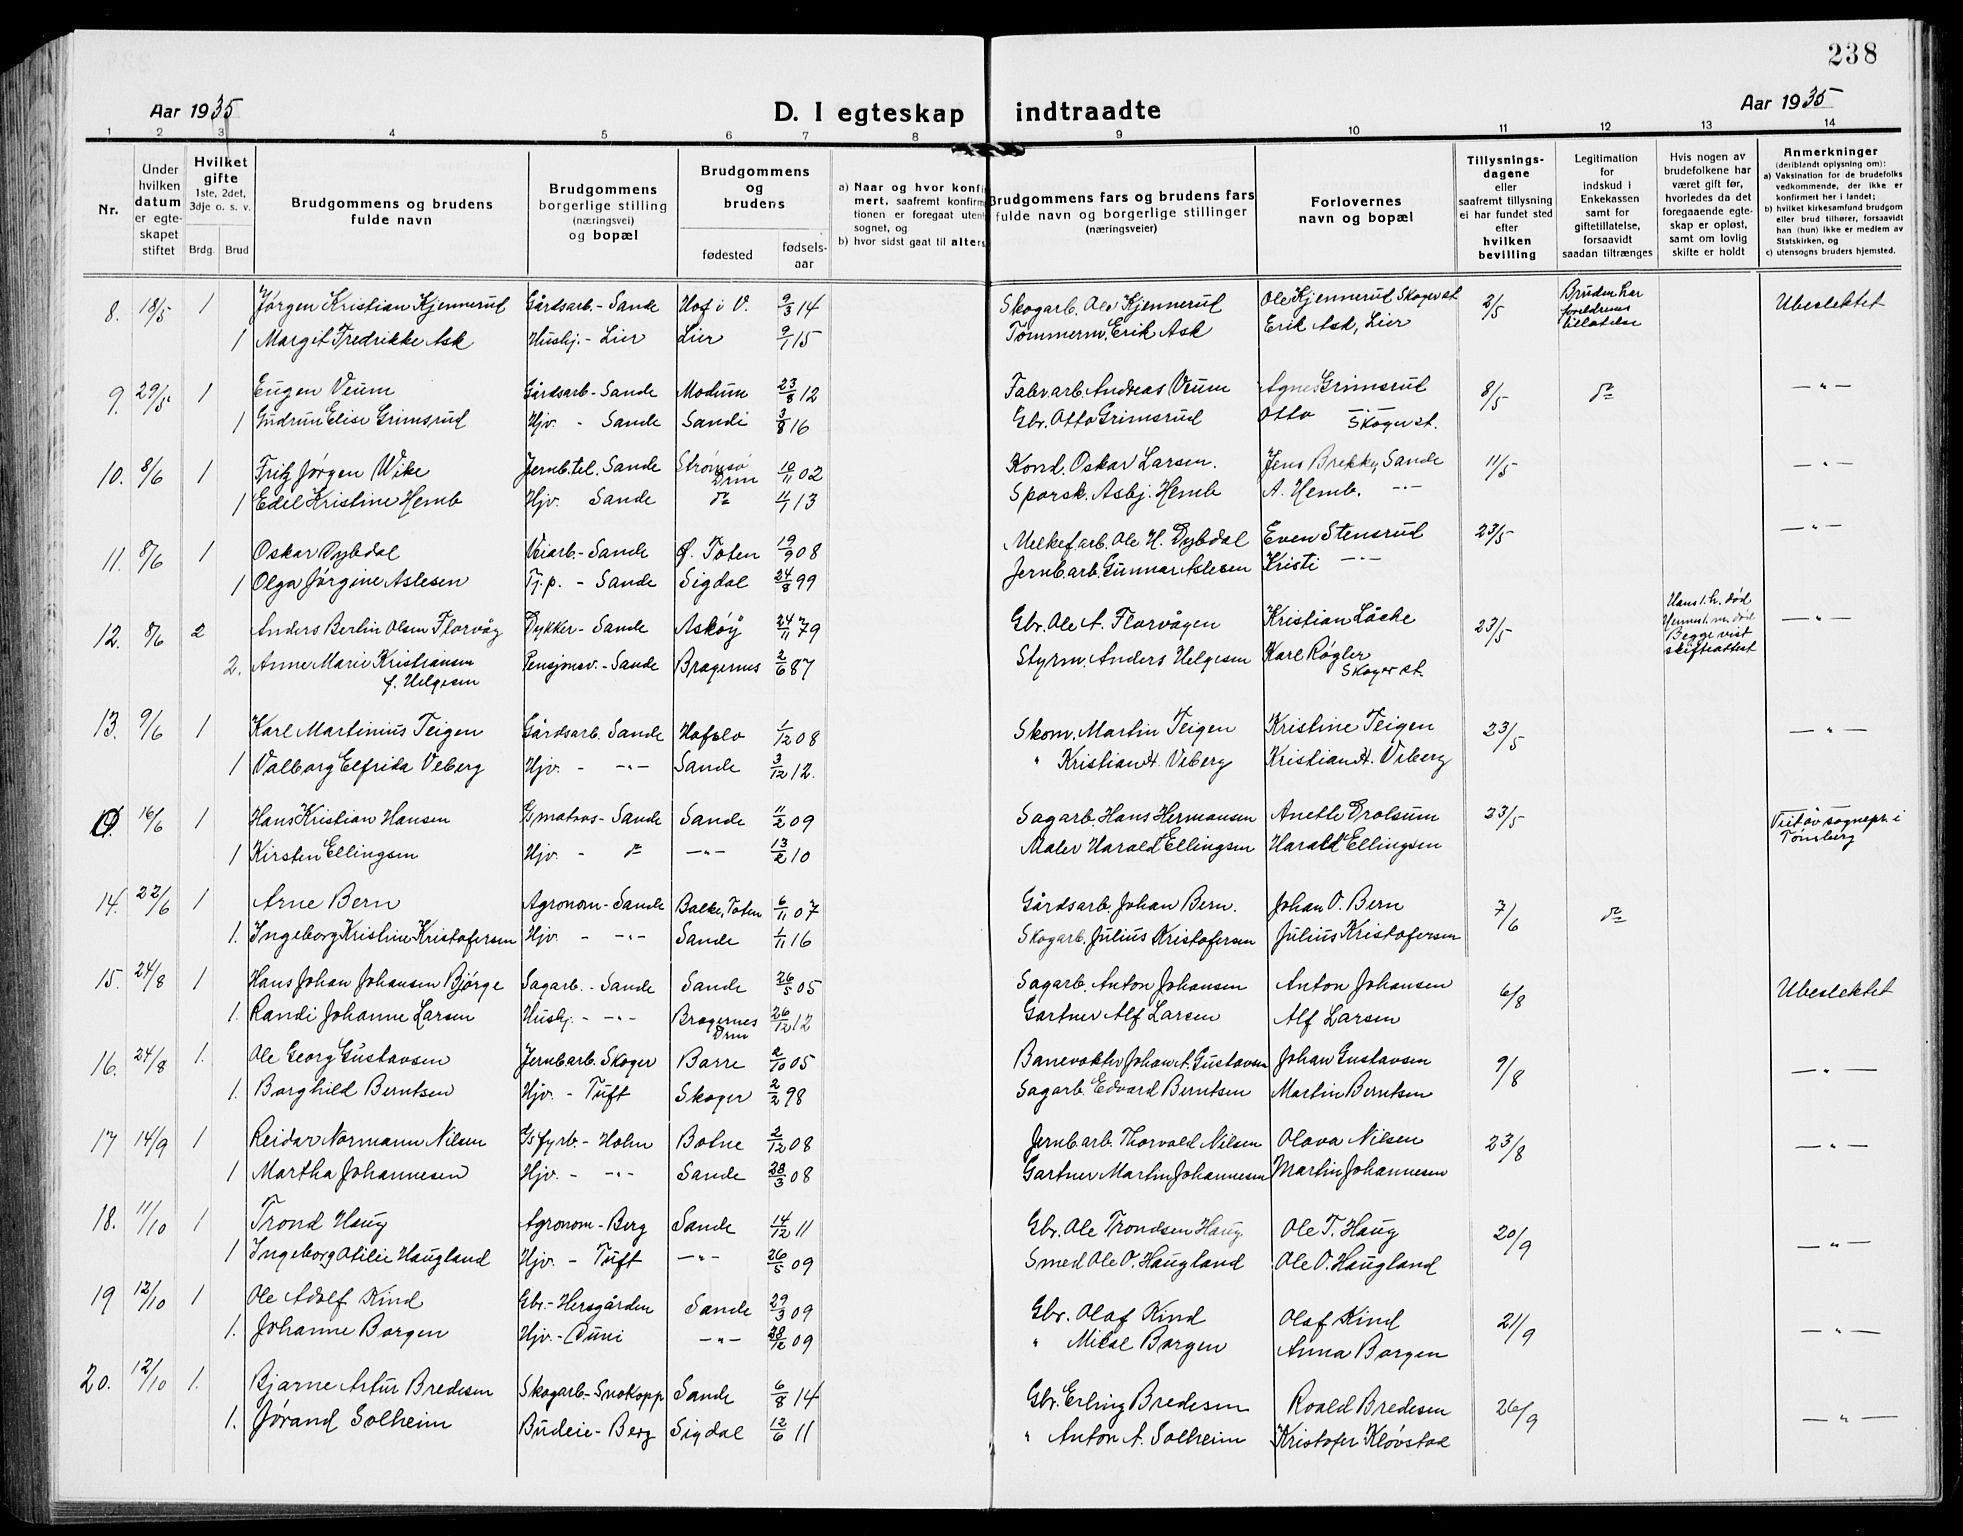 238
Aar 1935
D. I egteskap indtraadte
Aar 1935
1 2 3 4 5 6 7 8 9 10 11 12 13 14
Nr.
Under
hvilken
datum
er egte-
skapet
stiftet
Hvilket
gifte
1ste, 2det,
3dje o. s. v.
Brdg. Brud
Brudgommens og brudens
fulde navn
Brudgommens
borgerlige stilling
(næringsvei)
og bopæl
Brudgommens
og
brudens
fødested
fødsels-
aar
a) Naar og hvor konfi
mert, saafremt konfirm
tionen er foregaat uten
sognet, og
b) hvor sidst gaat til alters
Brudgommens fars og brudens fars
fulde navn og borgerlige stillinger
(næringsveier)
Forlovernes
navn og bopæl
Tillysnings-
dagene
eller
saafremt tillysning
ei har fundet sted
efter
hvilken
bevilling
Legitimation
for
indskud i
Enkekassen
samt for
giftetillatelse,
forsaavidt
saadan tiltrænges
Hvis nogen av
brudefolkene har
været gift før,
hvorledes da det
foregaaende egte-
skap er opløst,
samt om lovlig
skifte er holdt
Anmerkninger
(deriblandt oplysning om):
a) Vaksination for de brudefolks
vedkommende, der ikke er
konfirmert her i landet;
b) hvilket kirkesamfund brudgom
eller brud tilhører, forsaavidt
han (hun) ikke er medlem av
Statskirken, og
c) utensogns bruders hjemsted.
8. 18/5 1 Jørgen Kristian Kjennerud Gårdsarb. - Sande Hof i V. 9/3 14 Skogarb. Ole Kjennerud Ole Kjennerud Skoger st. 2/5 Bruden har foreldrenes tillatelse Ubeslektet
1 Margit Fredrikke Ask Hushj. - Lier Lier 9/1 15 Tømmerm. Erik Ask Erik Ask, Lier
9. 29/5 1 Eugen Veum Gårdsarb - Sande Modum 23/8 12 Fabr.arb. Andreas Veum Agnes Grimsrud 8/5 do — " —
1 Gudrun Elise Grimsrud Hjv. - Sande Sande 3/8 16 Gbr. Otto Grimsrud Otto — " — Skoger st.
10. 8/6 1 Fritz Jørgen Wike Jernb.tel. Sande Strømsø Drm 10/11 02 Kond. Oskar Larsen. Jens Brekke, Sande 11/5 — " —
1 Edel Kristine Hemb Hjv. Sande do 4/1 13 Sporsk. Asbj. Hemb A. Hemb. — " —
11. 8/6 1 Oskar Dybdal Veiarb - Sande Ø. Toten 19/9 08 Melkef.arb. Ole H. Dybdal Even Stensrud 23/5 — " —
1 Olga Jørgine Aslesen Tj.p. - Sande Sigdal 24/8 99 Jernb.arb. Gunnar Aslesen Kristi — " —
12. 8/6 2 Anders Berlin Olsen Florvåg Dykker - Sande Askøy 24/11 79 Gbr. Ole A. Florvågen Kristian Låche 23/5 Hans 1. h. død Hennes 1. m. død Begge vist skifteattest — " —
2. Anne Marie Kristiansen f. Helgesen Pensjonsv. - Sande Bragernes 2/6 87 Styrm. Anders Helgesen Karl Røgler Skoger st.
13. 9/6 1 Karl Martinius Teigen Gårdsarb. Sande Hafslo 1/12 08 Skom. Martin Teigen Kristine Teigen 23/5 — " —
1 Valborg Elfrida Viberg Hjv. - — " — Sande 3/12 12. " Kristian H. Viberg Kristian H. Viberg
16/6 1 Hans Kristian Hansen matros - Sande Sande 11/2 09 Sagarb. Hans Hermansen Anette Drolsum 23/5 Viet av sogneprs. i Tønsberg
1 Kirsten Ellingsen Hjv. - do — " — 13/2 10 Maler Harald Ellingsen Harald Ellingsen
14. 22/6 1 Arne Bern Agronom - Sande Balke, Toten 6/11 07 Gårdsarb. Johan Bern. Johan O. Bern 7/6 do
1. Ingeborg Kristine Kristofersen Hjv. - — " — Sande 1/11 16 Skogarb. Julius Kristofersen Julius Kristofersen
15. 24/8 1 Hans Johan Johansen Bjørge Sagarb. - Sande Sande 26/5 05 Sagarb. Anton Johansen Anton Johansen 6/8 Ubeslektet
1. Randi Johanne Larsen Hushj. - — " — Bragernes Drm 26/12 12 Gartner Alf Larsen Alf Larsen
16. 24/8 1. Ole Georg Gustavsen Jernbarb. Skoger Borre 2/10 05 Banevokter Johan A. Gustavsen Johan Gustavsen 9/8 — " —
1. Borghild Berntsen Hjv. - Tuft Skoger 2/2 98 Sagarb. Edvard Berntsen Martin Berntsen
17 14/9 1 Reidar Normann Nilsen fyrb. - Holm Botne 2/12 08 Jernbarb. Thorvald Nilsen Olava Nilsen 23/8 — " —
1 Martha Johannesen Hjv. - — " — Sande 28/3 08 Gartner Martin Johannesen Martin Johannesen
18. 11/10 1 Trond Haug Agronom - Berg Sande 14/12 11 Gbr. Ole Trondsen Haug Ole T. Haug 20/9 — " —
1 Ingeborg Otilie Haugland Hjv. - Tuft — " — 26/5 09 Smed Ole O. Haugland Ole O. Haugland
19 12/10 1 Ole Adolf Kind Gbr. - Hersgården Sande 29/3 09 Gbr. Olaf Kind Olaf Kind 21/9 — " —
1. Johanne Borgen Hjv. - — " — 28/12 09 " Mikal Borgen Anna Borgen
20. 12/10 1. Bjarne Artur Bredesen Skogarb. - Snekopp Sande 6/8 14 Gbr. Erling Bredesen Roald Bredesen 26/9 — " —
1. Jørand Solheim Budeie - Berg Sigdal 12/6 11 " Anton A. Solheim Kristofer Kløvstad